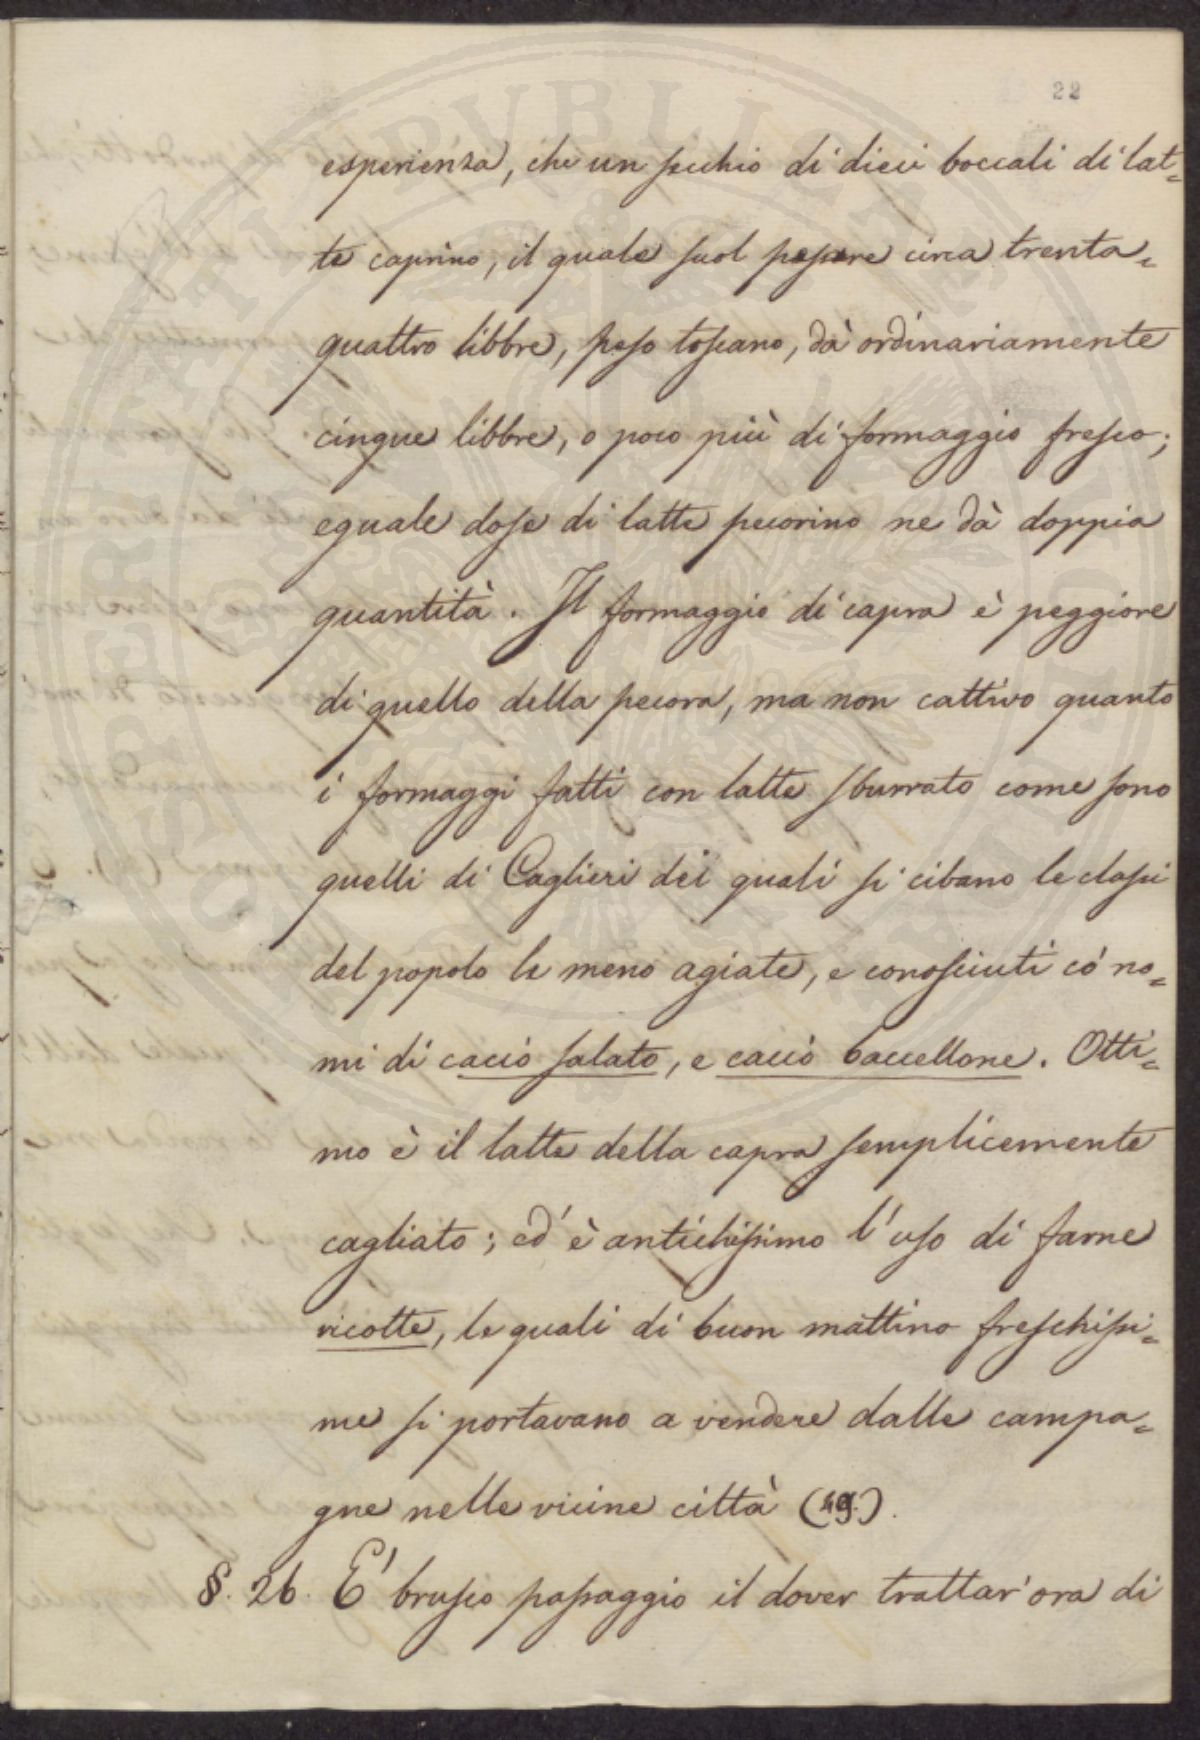 22
esperienza, che un secchio di dieci boccali di lat=
te caprino, il quale suol pesare circa trenta=
quattro libbre, peso toscano, dà ordinariamente
cinque libbre, o poco più di formaggio fresco;
eguale dose di latte pecorino ne dà doppia
quantità. Il formaggio di capra è peggiore
di quello della pecora, ma non cattivo quanto
i formaggi fatti con latte sburrato come sono
quelli di Caglieri dei quali si cibano le classi
del popolo le meno agiate, e conosciuti có no=
mi di cacio salato, e cacio baccellone. Otti=
mo è il latte della capra semplicemente
cagliato; ed è antichissimo l'uso di farne
ricotte, le quali di buon mattino freschissi=
me si portavano a vendere dalle campa=
gne nelle vicine città (49.).
§. 26. E' brusco passaggio il dover trattar' ora di